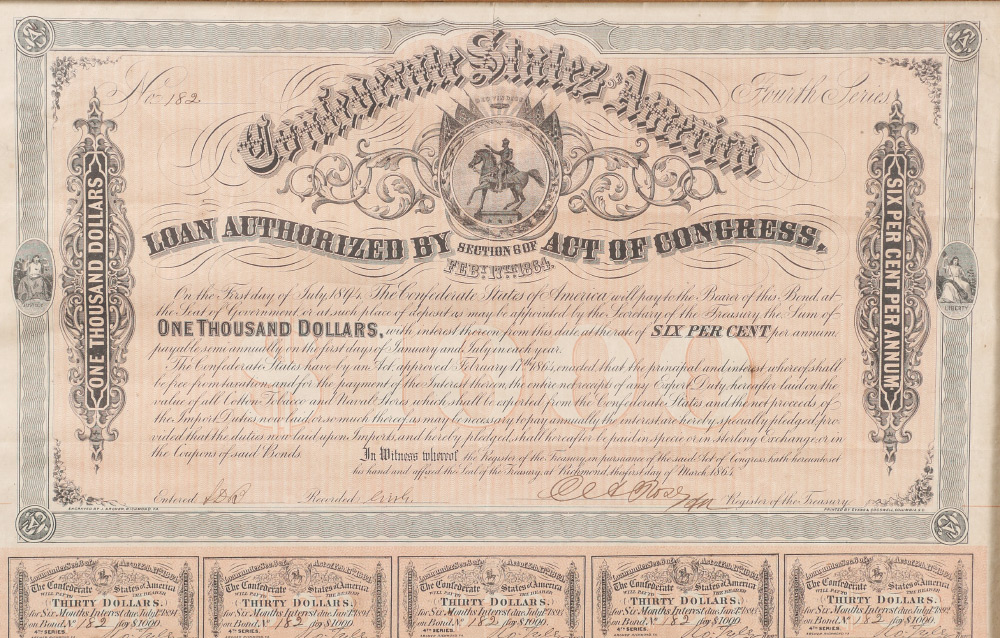 No 182
Fourth Series
Confederate States of America
DEO VINDICE
LOAN AUTHORIZED BY SECTION 6 OF ACT OF CONGRESS,
FEBY. 17TH. 1864.
ONE THOUSAND DOLLARS
SIX PER CENT PER ANNUM
LIBERTY
$1000
On the First day of July 1894, The Confederate States of America will pay to the Bearer of this Bond, at
the Seat of Government, or at such place of deposit as may be appointed by the Secretary of the Treasury, the Sum of
ONE THOUSAND DOLLARS, with interest thereon from this date at the rate of SIX PER CENT per annum
payable semi annually on the first days of January and July in each year.
The Confederate States have by an Act approved February 17th 1864, enacted that the principal and interest whereof shall
be free from taxation, and for the payment of the Interest thereon, the entire net receipts of any Export Duty hereafter laid on the
value of all Cotton Tobacco and Naval Stores which shall be exported from the Confederate States and the net proceeds of
the Import Duties now laid or so much thereof as may be necessary to pay annually the interest are hereby specially pledged pro-
vided that the duties now laid upon Imports, and hereby pledged, shall hereafter be paid in specie or in Sterling Exchange or in
the Coupons of said Bonds.
In Witness whereof the Register of the Treasury, in pursuance of the said Act of Congress, hath hereunto set
his hand and affixed the Seal of the Treasury, at Richmond, this first day of March 1864
Entered Recorded Register of the Treasury.
ENGRAVED BY J. ARCHER, RICHMOND, VA.
PRINTED BY EVANS & COGSWELL, COLUMBIA S.C.
The Confederate States of America
WILL PAY TO THE BEARER
THIRTY DOLLARS.
for Six Months Interest due Jany 1st 1894
on Bond No 182 for $1000.
4TH SERIES.
The Confederate States of America
WILL PAY TO THE BEARER
THIRTY DOLLARS.
for Six Months Interest due
on Bond No 182 for $1000.
4TH SERIES.
The Confederate States of America
WILL PAY TO THE BEARER
THIRTY DOLLARS.
for Six Months Interest due
on Bond No 182 for $1000.
4TH SERIES.
The Confederate States of America
WILL PAY TO THE BEARER
THIRTY DOLLARS.
for Six Months Interest due
on Bond No 182 for $1000.
4TH SERIES.
The Confederate States of America
WILL PAY TO THE BEARER
THIRTY DOLLARS.
for Six Months Interest due
on Bond No 182 for $1000.
4TH SERIES.